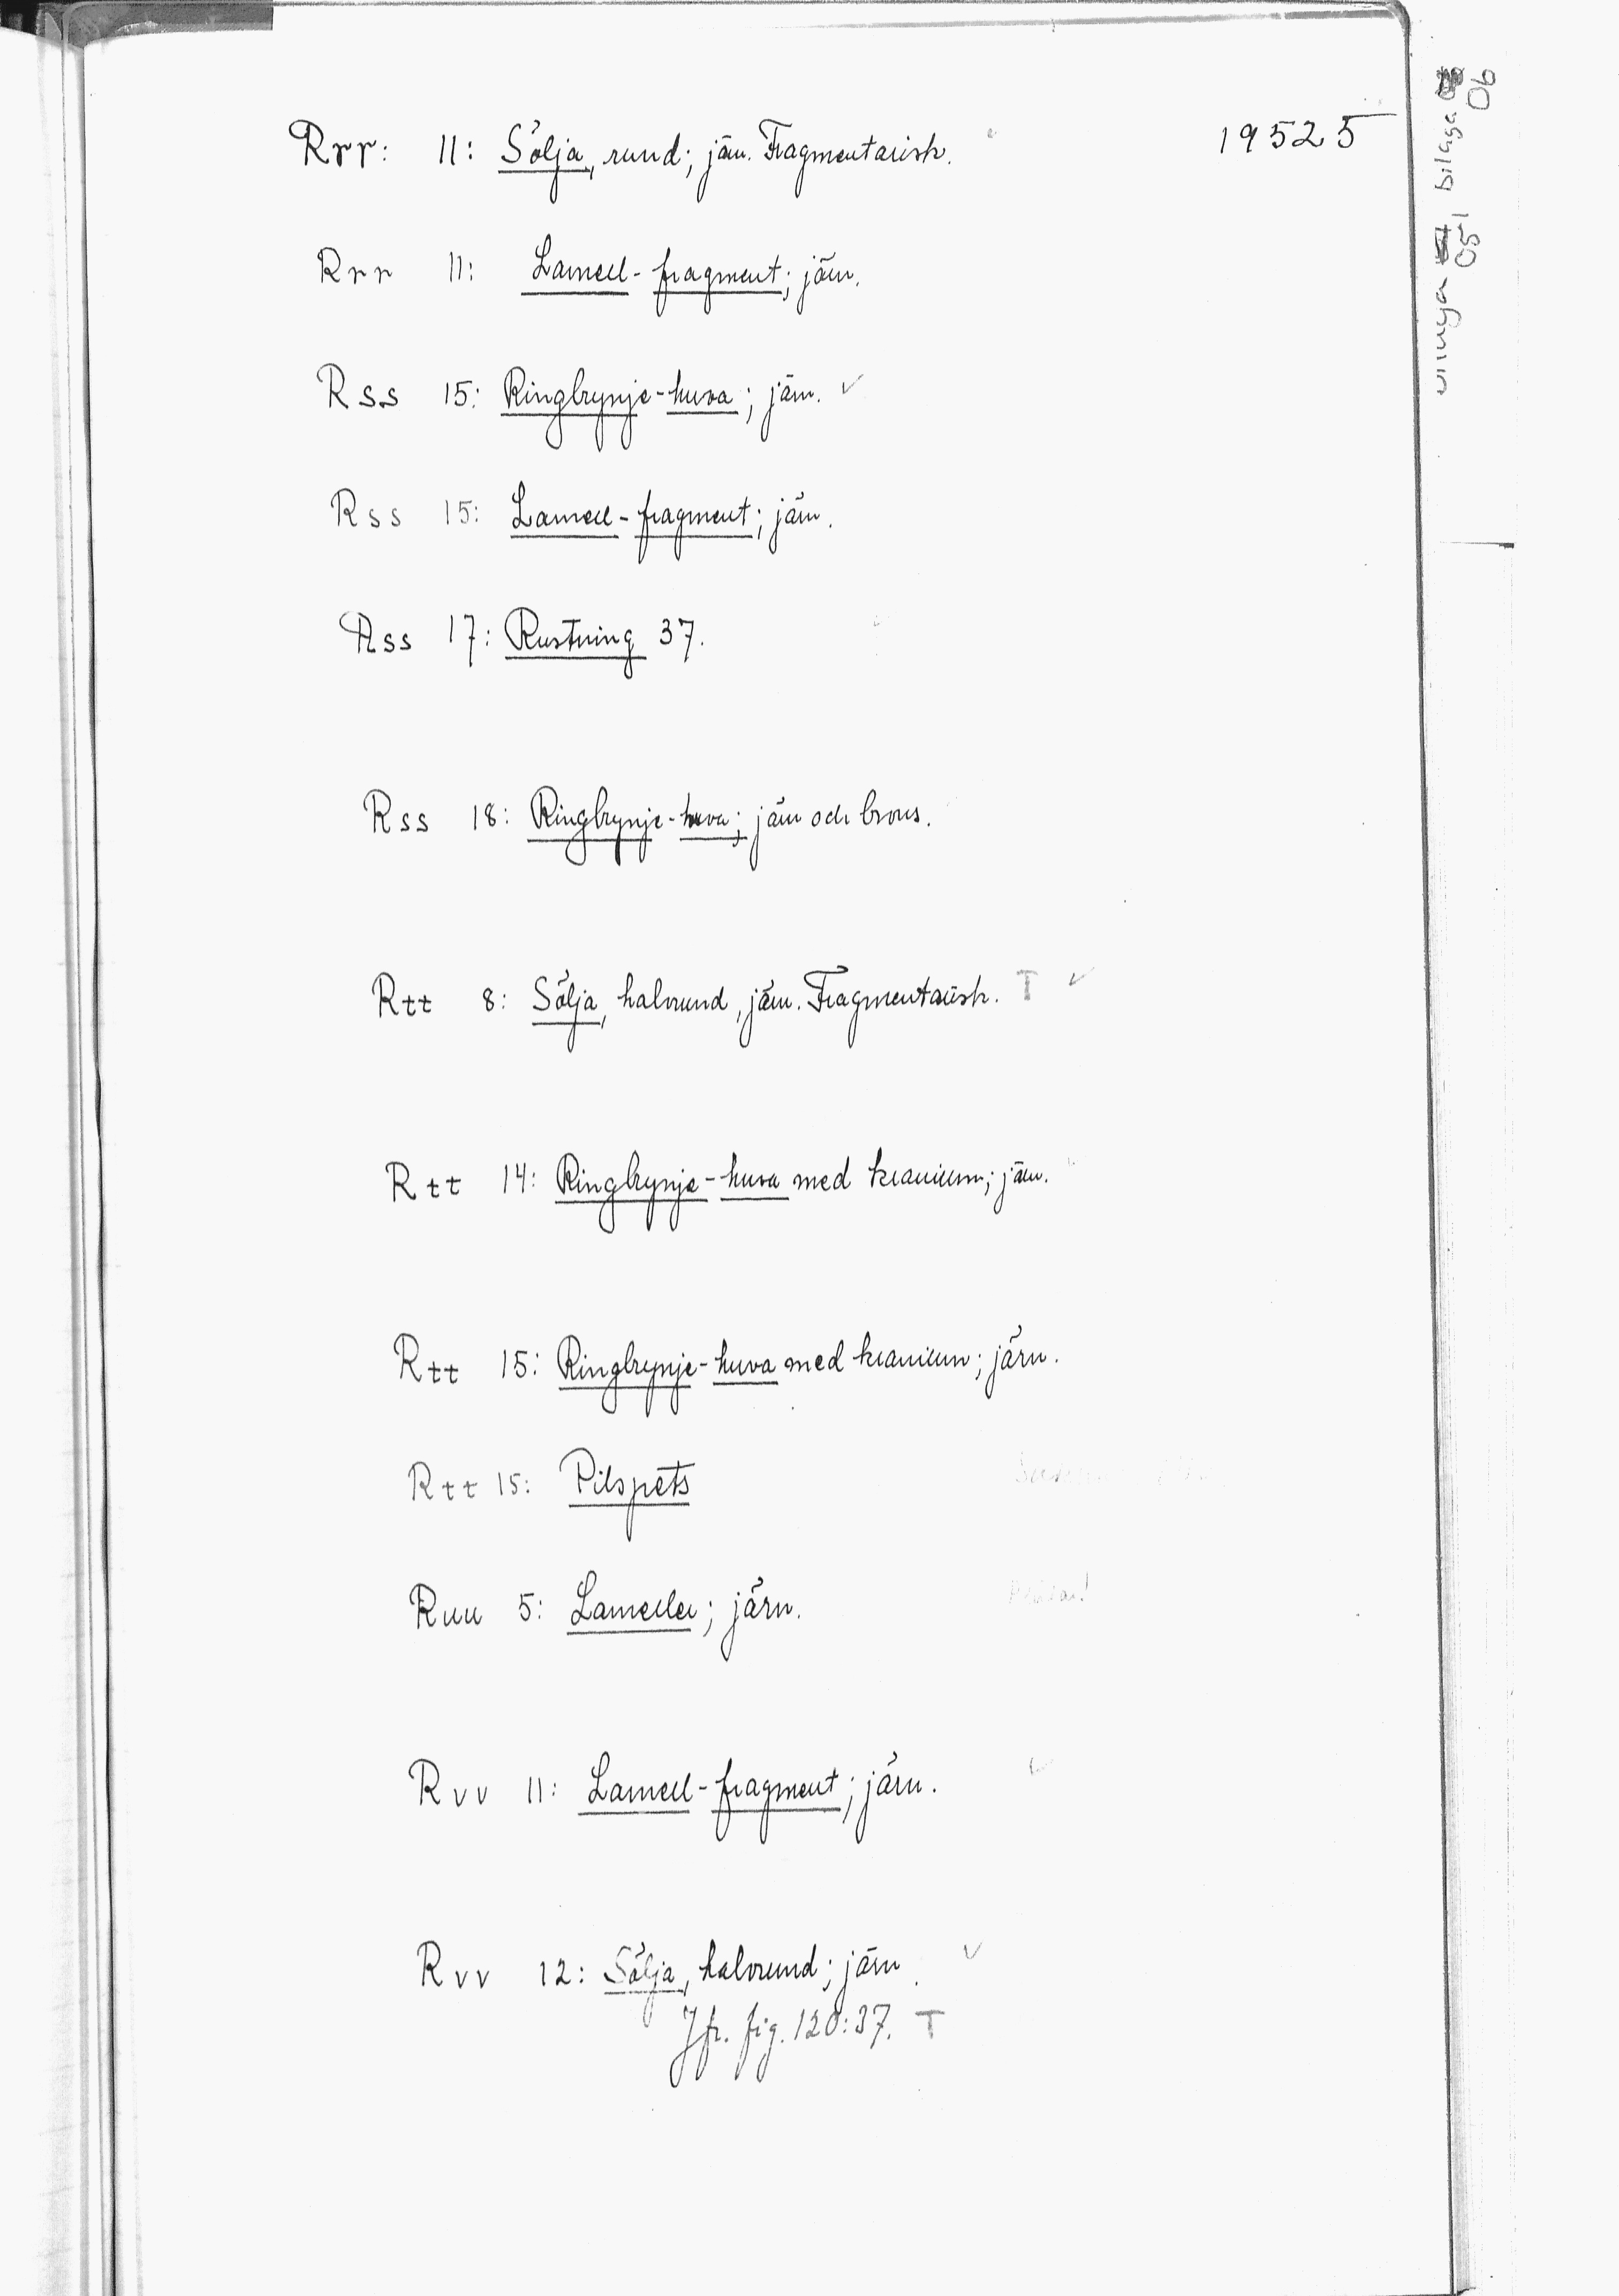 19525
Rrr: 11: Sölja, rund; järn. Fragmentarisk.
Rrr 11: Lamell-fragment; järn.
Rss 15: Ringbrynje-huva; järn. ✓
Rss 15: Lamell-fragment; järn.
Rss 17: Rustning 37.
Rss 18: Ringbrynje-huva; järn och brons.
Rtt 8: Sölja, halvrund, järn. Fragmentarisk. T ✓
Rtt 14: Ringbrynje-huva med kranium; järn.
Rtt 15: Ringbrynje-huva med kranium; järn.
Rtt 15: Pilspets
Ruu 5: Lameller; järn.
Rvv 11: Lamell-fragment; järn. ✓
Rvv 12: Sölja, halvrund; järn. ✓
Jfr. fig. 120:37. T
bilaga
051 06